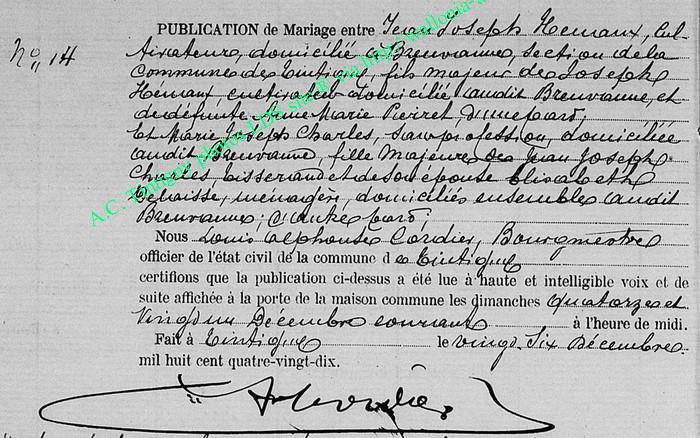 N° 14
PUBLICATION de Mariage entre Jean Joseph Hemaux, Cul-
tivateur, domicilié à Breuvanne, section de la
Commune de Tintigny, fils majeur de Joseph
Hemaux, cultivateur domicilié audit Breuvanne, et
de défunte Anne Marie Pierret, d'une part;
Et Marie Joseph Charles, sans profession, domiciliée
audit Breuvanne, fille majeure de Jean Joseph
Charles, tisserand et de son épouse Elisabeth
ménagère, domiciliés ensemble audit
Breuvanne; d'autre part;
Nous Louis Alphonse Cordier, Bourgmestre
officier de l'état civil de la commune d e Tintigny
certifions que la publication ci-dessus a été lue à haute et intelligible voix et de
suite affichée à la porte de la maison commune les dimanches quatorze et
Vingt un Décembre courant à l'heure de midi.
Fait à Tintigny le vingt-six Décembre
mil huit cent quatre-vingt-dix.
A.C. Tintigny photos LDS via http://wallonia-